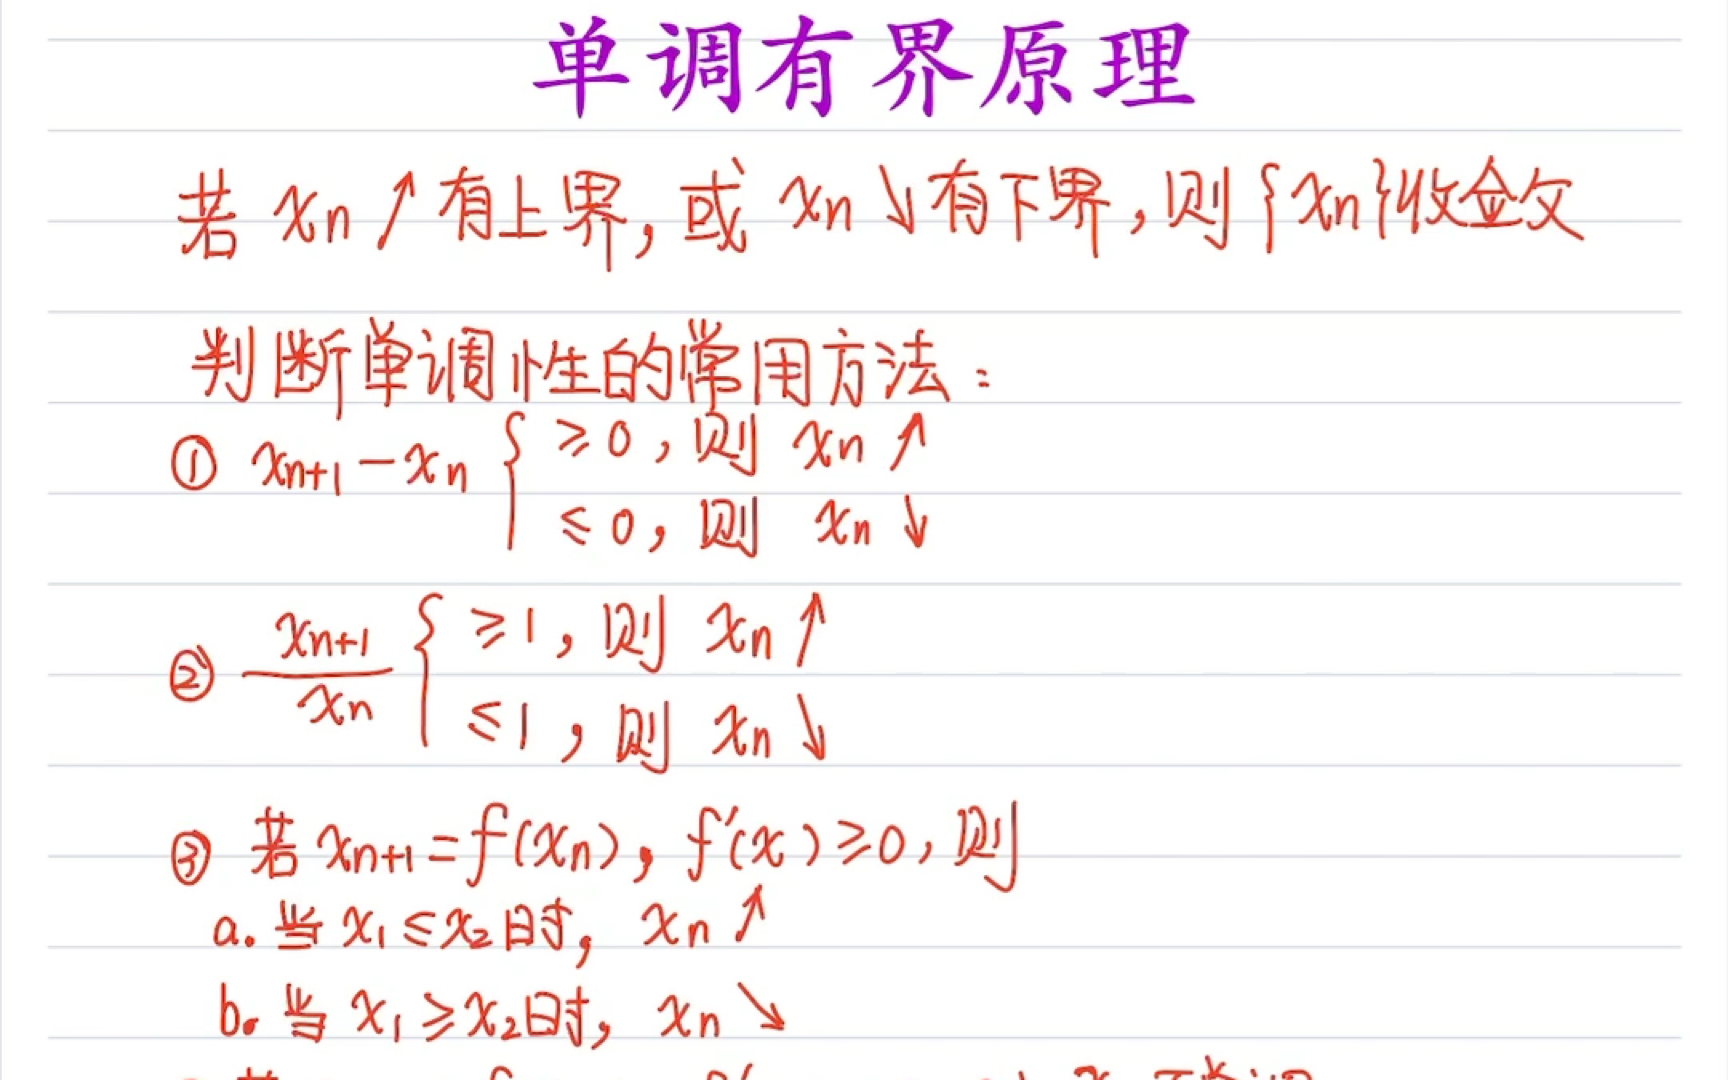 单调有界原理
若 xn ↗ 有上界, 或 xn ↘ 有下界, 则 {xn} 收敛
判断单调性的常用方法:
① xn+1 - xn { ≥0, 则 xn ↗
≤0, 则 xn ↓
② xn+1 / xn { ≥1, 则 xn ↗
≤1, 则 xn ↘
③ 若 xn+1 = f(xn), f′(x) ≥ 0, 则
a. 当 x1 ≤ x2 时, xn ↗
b. 当 x1 ≥ x2 时, xn ↘